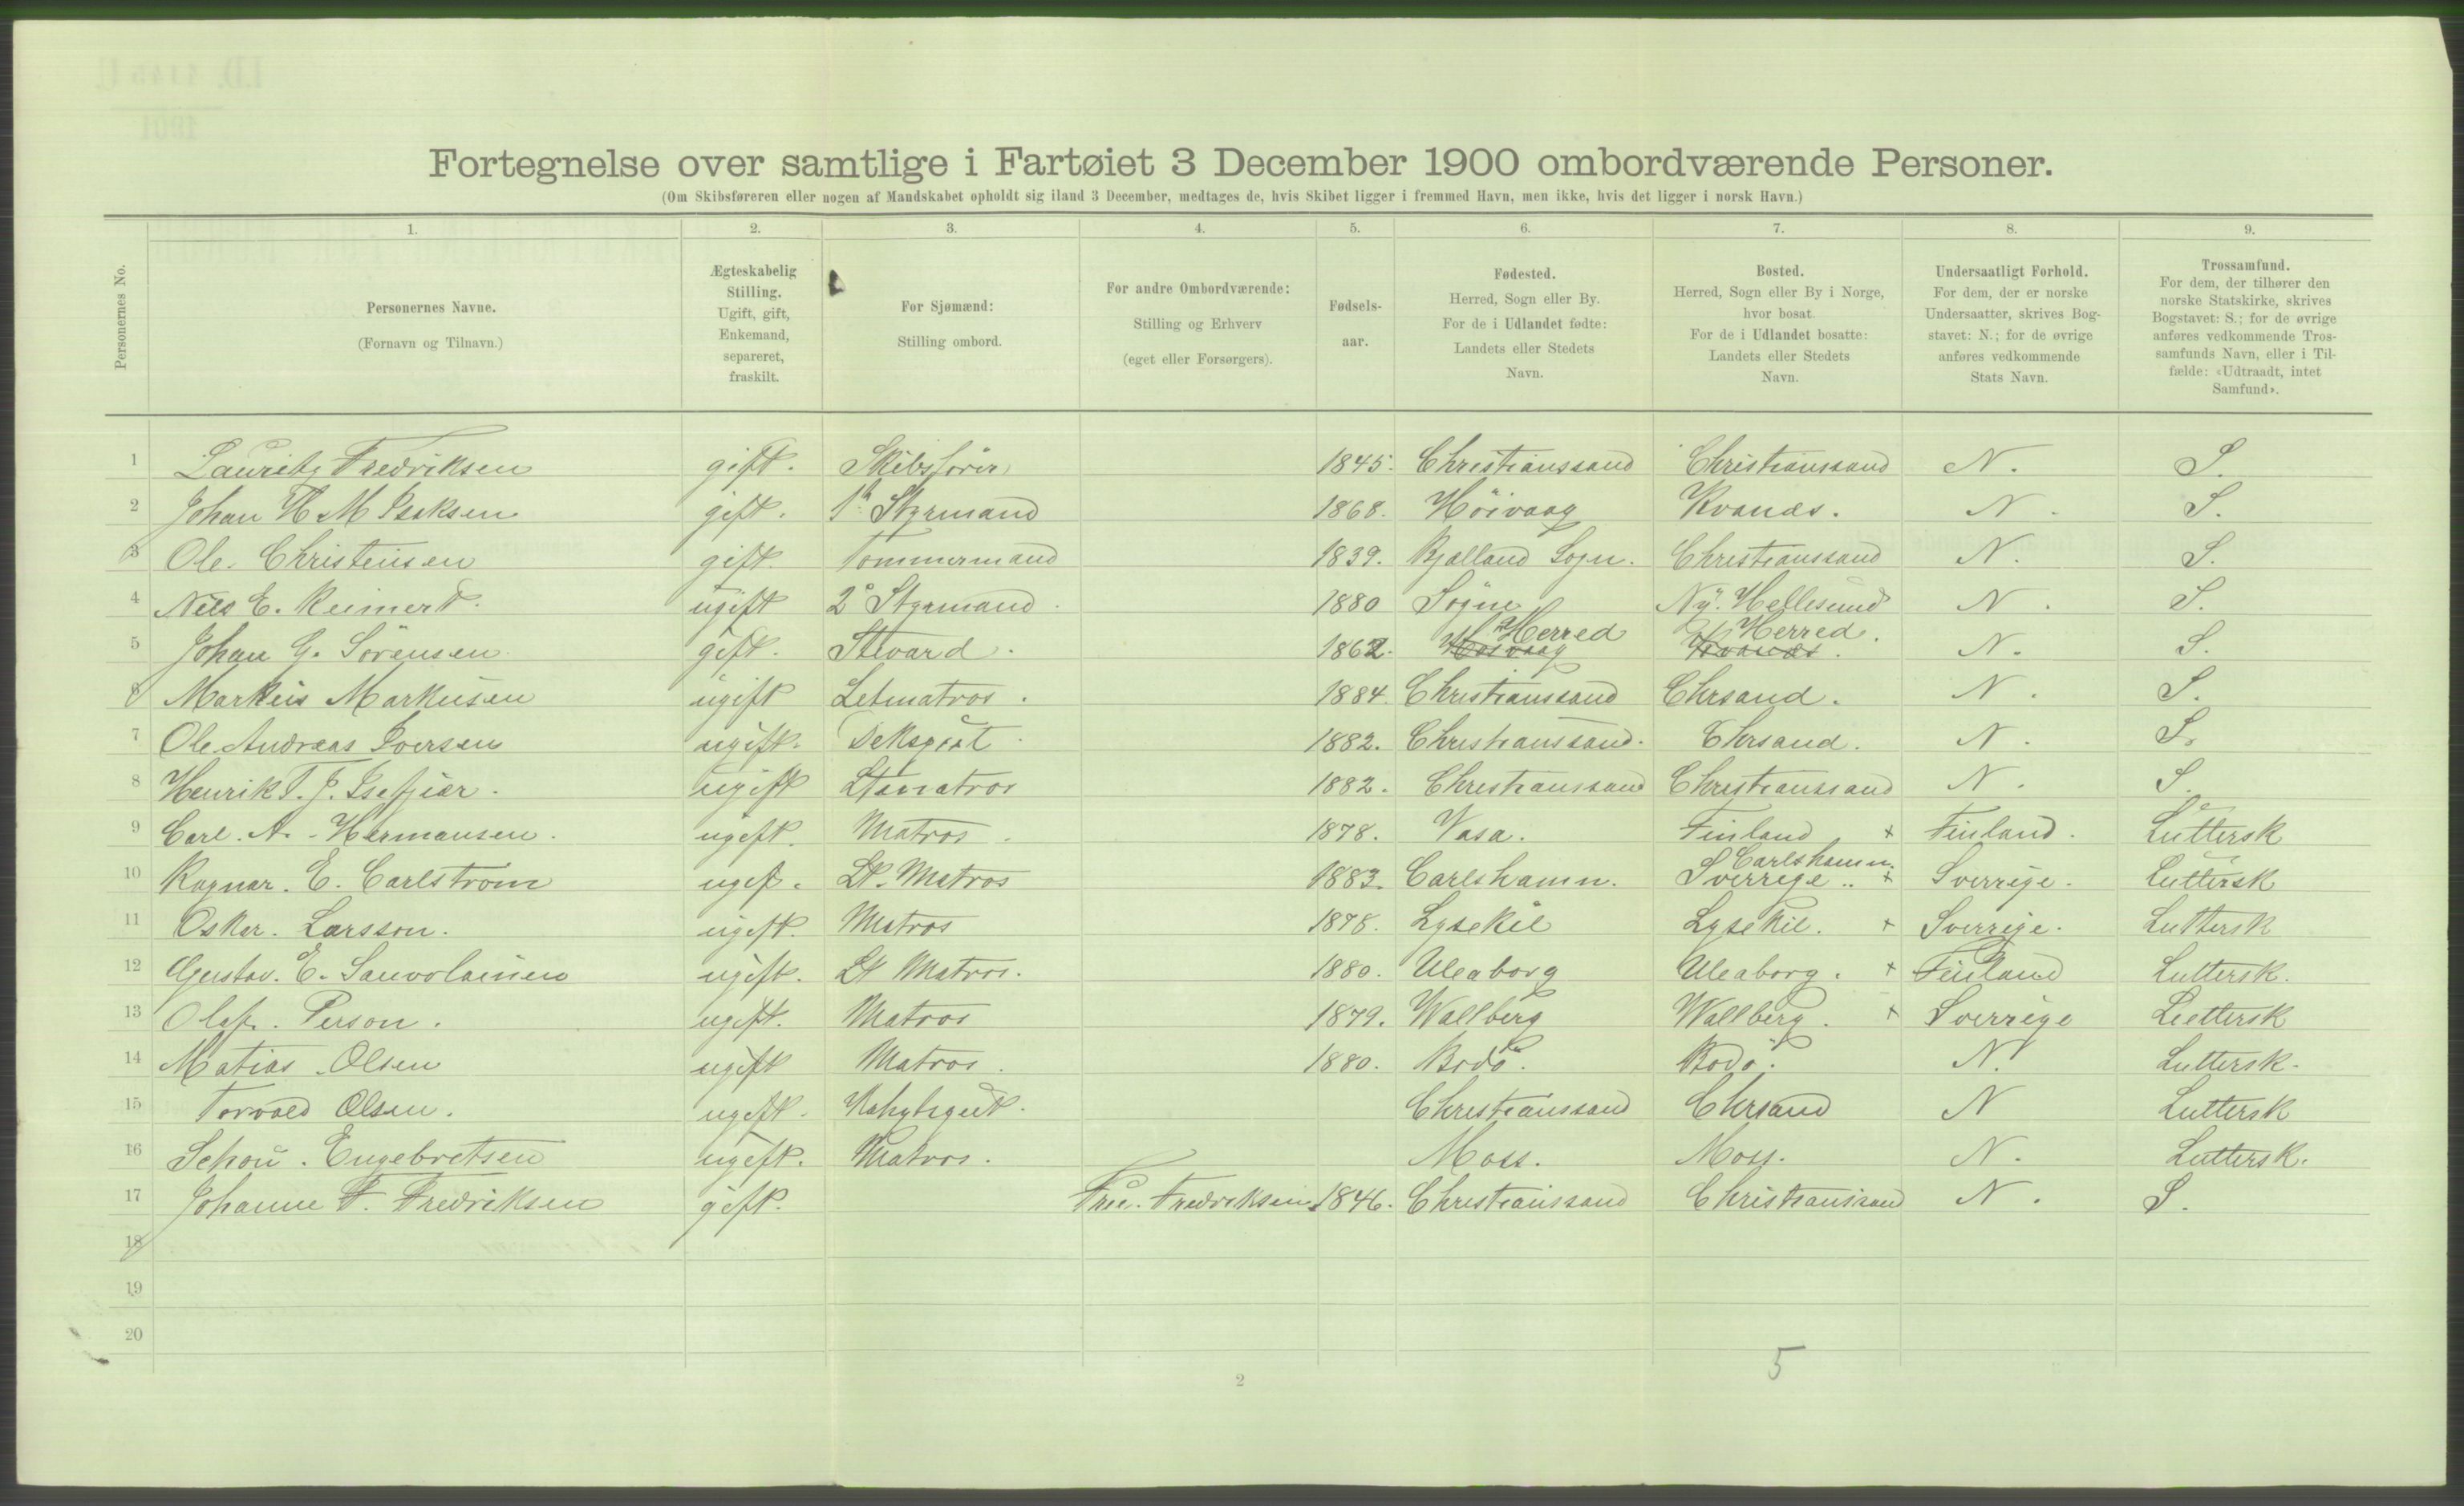 Fortegnelse over samtlige i Fartøiet 3 December 1900 ombordværende Personer.
(Om Skibsføreren eller nogen af Mandskabet opholdt sig iland 3 December, medtages de, hvis Skibet ligger i fremmed Havn, men ikke, hvis det ligger i norsk Havn.)
Personernes No.
1. Personernes Navne. (Fornavn og Tilnavn.)
2. Ægteskabelig Stilling. Ugift, gift, Enkemand, separeret, fraskilt.
3. For Sjømænd: Stilling ombord.
4. For andre Ombordværende: Stilling og Erhverv (eget eller Forsørgers).
5. Fødsels-aar.
6. Fødested. Herred, Sogn eller By. For de i Udlandet fødte: Landets eller Stedets Navn.
7. Bosted. Herred, Sogn eller By i Norge, hvor bosat. For de i Udlandet bosatte: Landets eller Stedets Navn.
8. Undersaatligt Forhold. For dem, der er norske Undersaatter, skrives Bogstavet: N.; for de øvrige anføres vedkommende Stats Navn.
9. Trossamfund. For dem, der tilhører den norske Statskirke, skrives Bogstavet: S.; for de øvrige anføres vedkommende Trossamfunds Navn, eller i Tilfælde: «Udtraadt, intet Samfund».
1 Lauritz Fredriksen gift. Skibsförer 1845. Christianssand Christianssand N. S.
2 Johan H M Isaksen gift. 1ste Styrmand 1868. Höivaag Kvanæs. N. S.
3 Ole. Christensen gift. Tommermand 1839. Bjælland Sogn. Christianssand N. S.
4 Nils E. Reimert. ugift 2° Styrmand. 1880 Sögne Ny. Hellesund N. S.
5 Johan G. Sörensen. gift. Stivard. 1862. Höivaag Herred Kvanæs. Herred. N. S.
6 Markus Markusen ugift Letmatros. 1884. Christianssand Chrsand. N. S.
7 Ole Andreas Iversen ugift. Deksgut. 1882. Christianssand. Chrsand. N. S.
8 Henrik T. J. Isefjær. ugift Ltmatros 1882. Christianssand Christianssand N. S.
9 Carl. A. - Hermansen. ugift. Matros. 1878. Vasa. Finland + Finland. Luttersk
10 Ragnar. E. Carlstrom ugif. Lt. Matros 1883. Carlshamn. Sverrige.. Carlshamn. + Sverrige. Luttersk
11 Oskar. Larsson. ugift. Matros 1878. Lysekil Lysekil. + Sverrige. Luttersk
12 Gustav. E. Sauvolainen ugift. Lt Matros. 1880. Uleaborg Uleaborg. + Finland Luttersk.
13 Olaf. Person. ugift. Matros 1879. Wallberg Wallberg. + Sverrige Luttersk
14 Matias Olsen ugift Matros. 1880. Bodö. Bodö. N. Luttersk.
15 Torvald Olsen. ugift. Kahytsgut. Christianssand Chrsand N Luttersk
16 Schou. Engebretsen ugift. Matros. Moss. Moss. N. Luttersk.
17 Johanne F. Fredriksen gift. Fredriksen 1846. Christianssand Christianssand N. S.
18
19
20
5
2